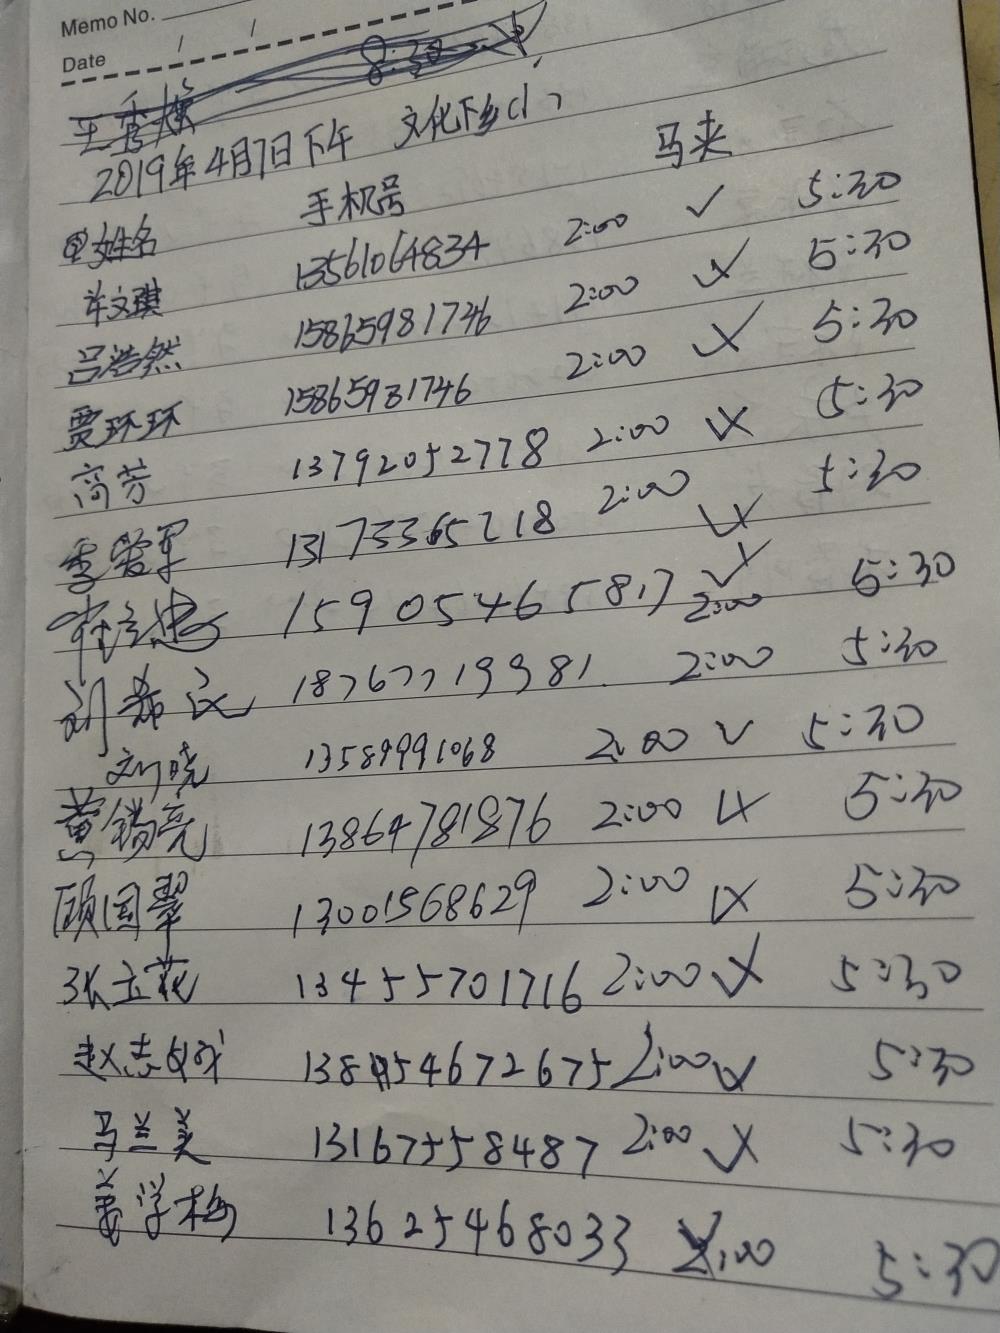 Memo No.
Date / /
8:30
2019年4月7日下午 文化下乡(1)
姓名 手机号 马夹
13561064834 2:00 ✓ 5:30
吕浩然 15865981746 2:00 5:30
贾环环 15865981746 2:00 5:30
高芳 13792052778 2:00 5:30
李荣军 13173365218 2:00 5:30
15905465817 2:00 ✓ 5:30
刘希民 18767719981 2:00 5:30
刘晓 13589991068 2:00 ✓ 5:30
黄锡亮 13864781876 2:00 5:30
顾国翠 13001568629 2:00 5:30
张立花 13455701716 2:00 5:30
赵志 2:00 5:30
马兰美 13167558487 2:00 5:30
姜学梅 13625468033 2:00 5:30